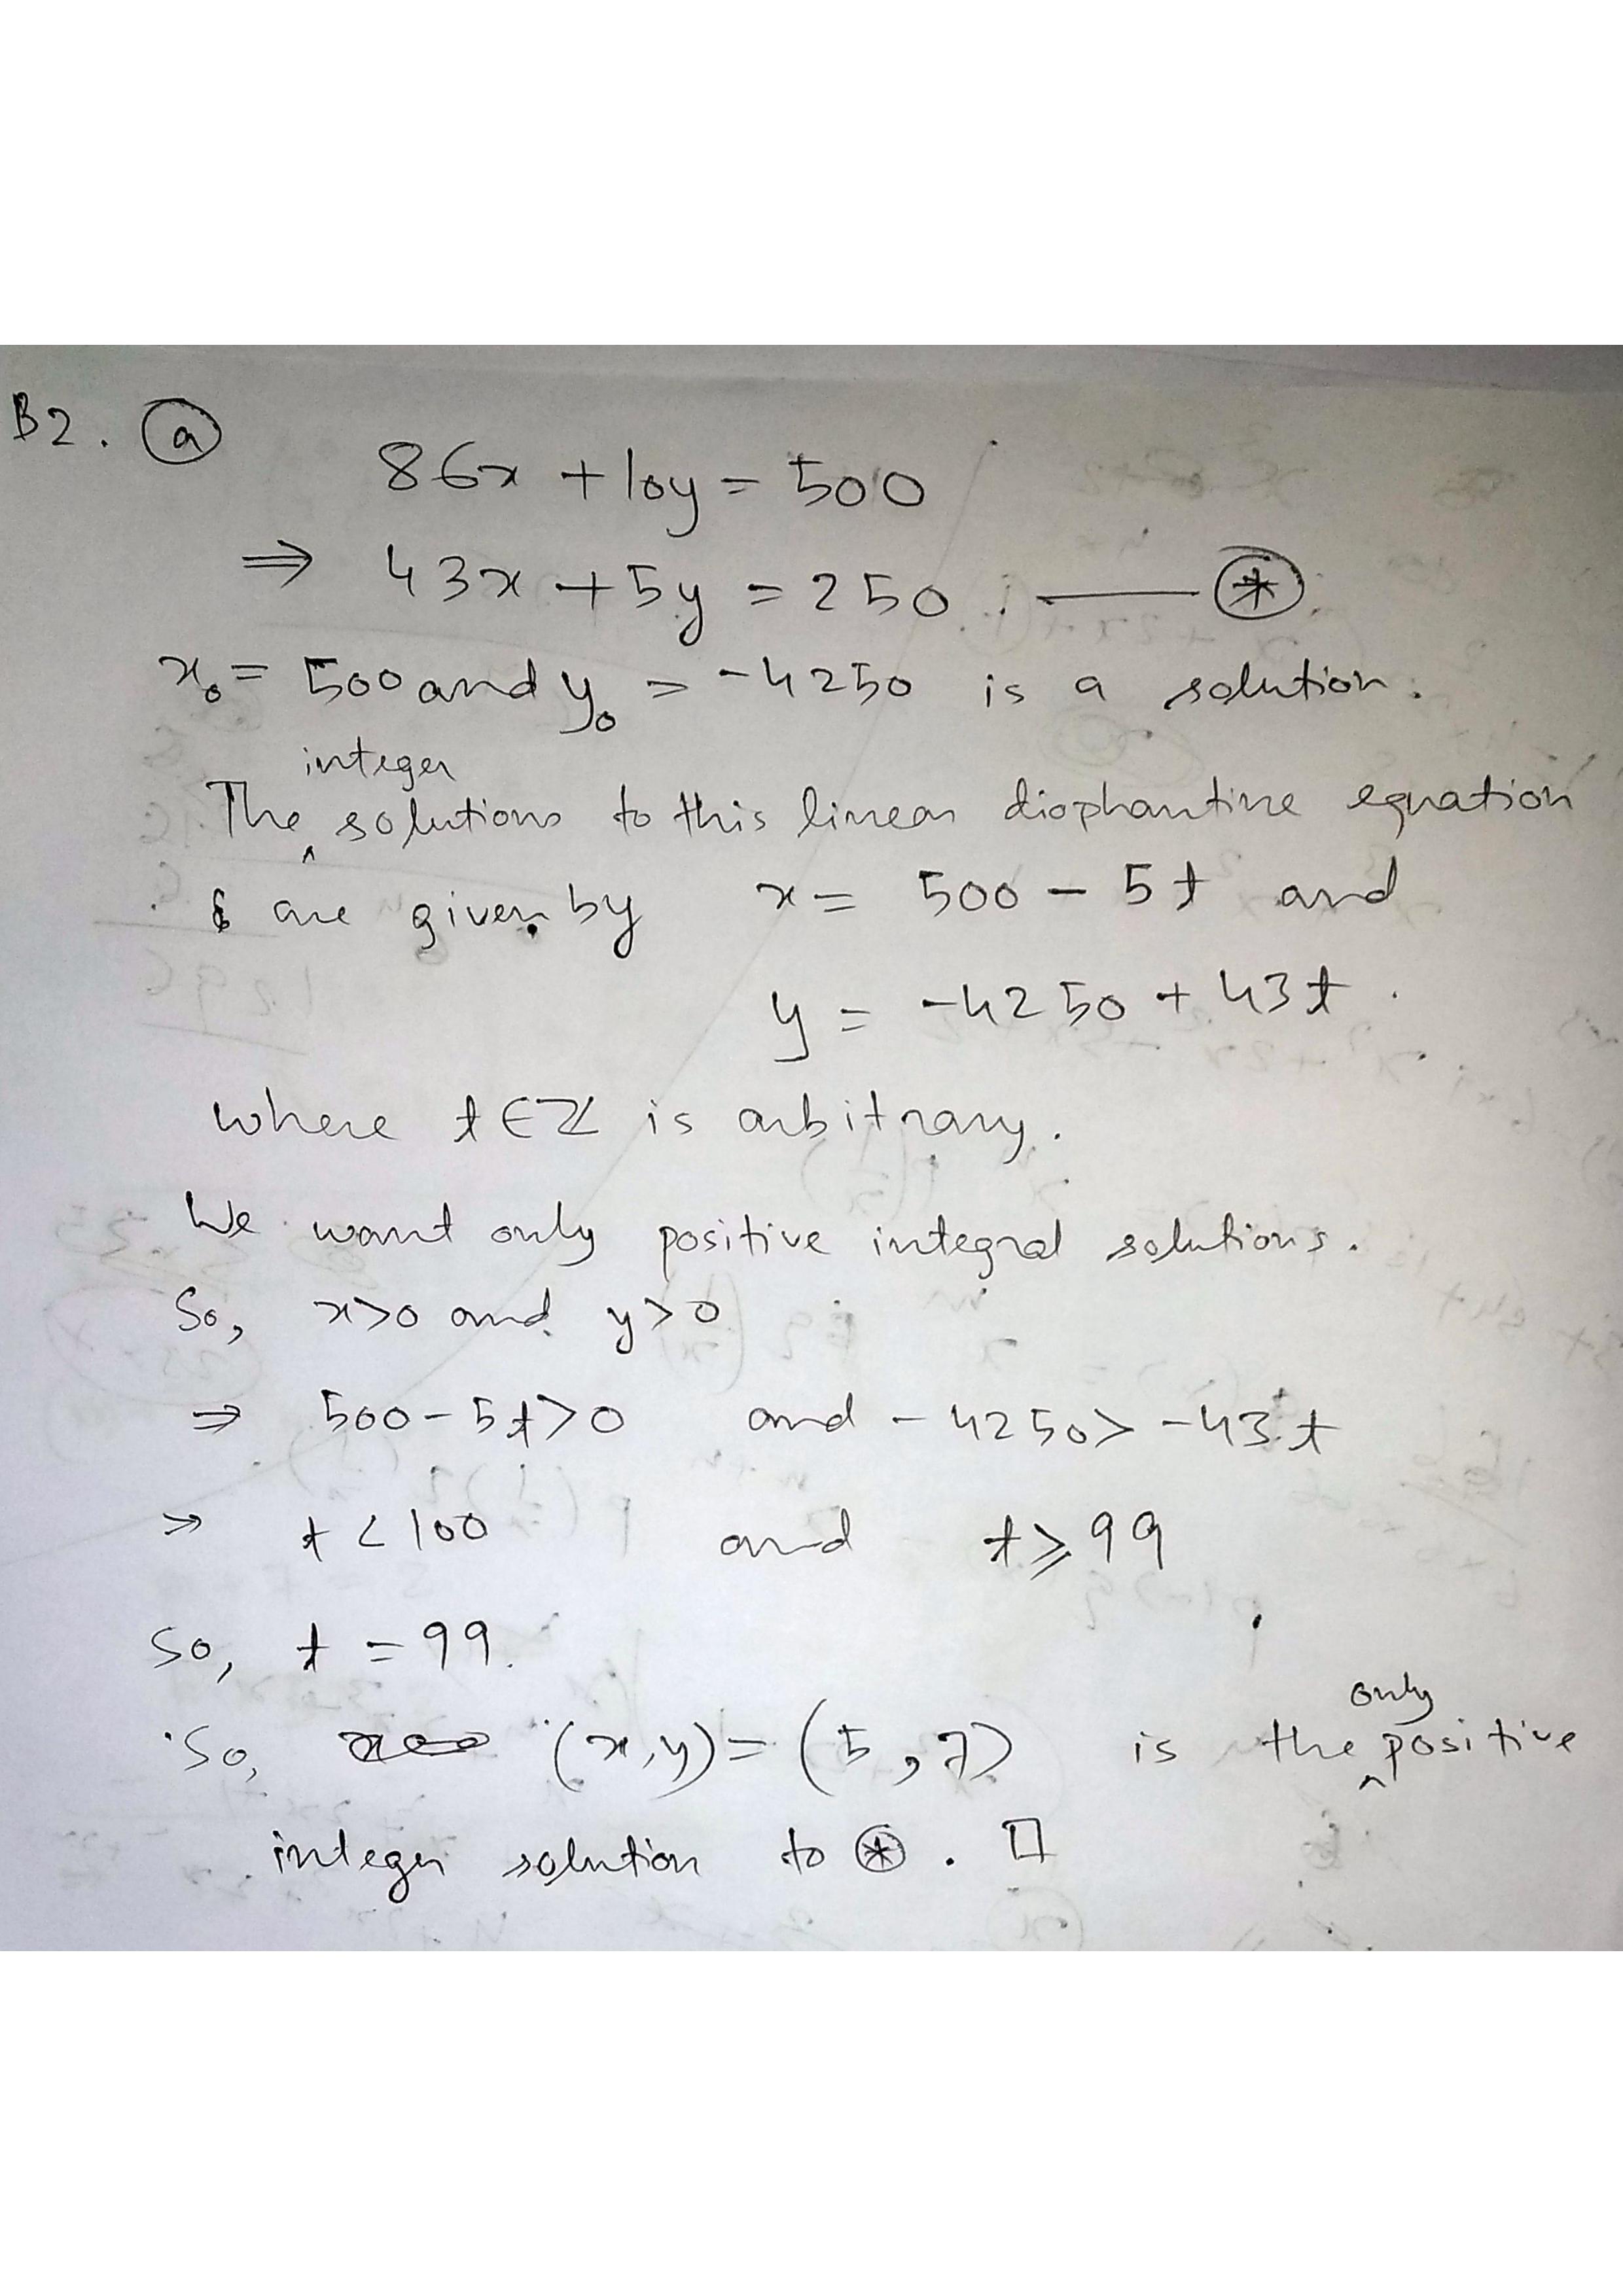 B2. (a)
86x + 10y = 500
⇒ 43x + 5y = 250. —— (*)
x₀ = 500 and y₀ = -4250 is a solution.
integer
The ^ solutions to this linear diophantine equation
are given by x = 500 - 5t and
y = -4250 + 43t.
where t ∈ ℤ is arbitrary.
We want only positive integral solutions.
So, x>0 and y>0
⇒ 500 - 5t > 0 and -4250 > -43t
⇒ t < 100 and t ⩾ 99
So, t = 99.
only
So, (x, y) = (5, 7) is the ^ positive
integer solution to (*). □